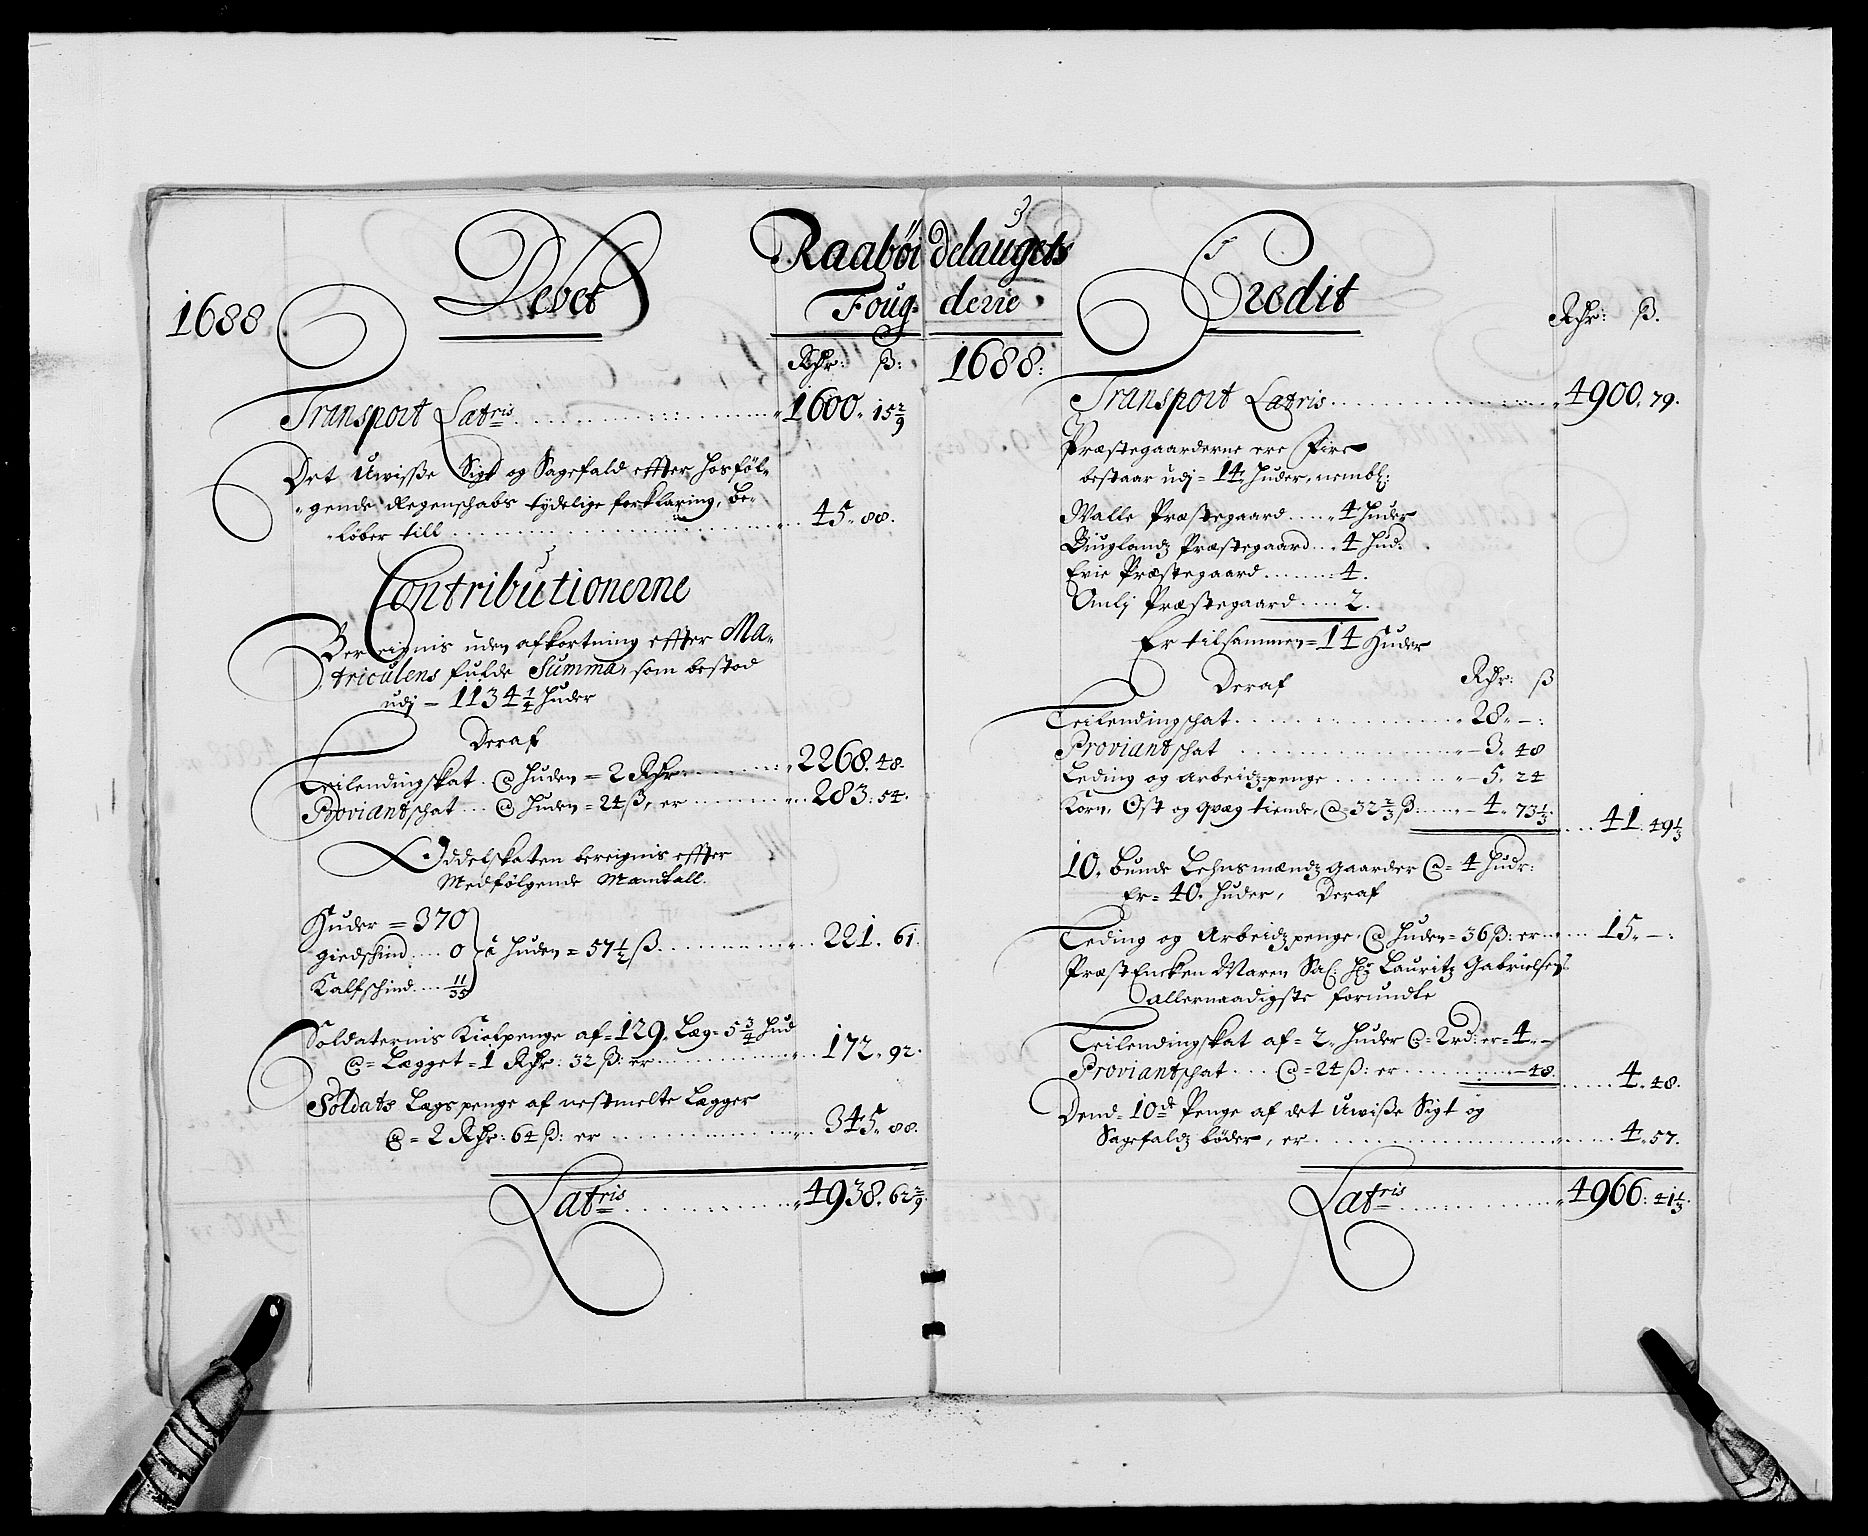 3
Raabøidelaugets
Foug- derie
1688
Debet
Rdr: ß:
Transport Latris 1600. 15 2/9
Det uwisse Sigt og Sagefald effter hosføl-
gende Regenschabs tydelige forklaring, be-
løber till 45. 88.
Contributionerne
Bereignis uden afkortning effter Ma-
triculens fulde Summa, som bestod
udj - 1134 1/4 huder
Deraf
Leilendingskat @ huden = 2 Rdr 2268. 48.
Proviantschat @ huden = 24 ß, er 283. 54.
Oddelskaten bereignis effter
Medfølgende Mantall.
Huder = 370
giedschind 0 à huden = 57 1/2 ß 221. 61.
Kalfschind 11/35
Soldaternis Kiolpenge af = 129. Læg = 5 3/4 hud
@ = Lægget = 1 Rdr: 32 ß: er 172. 92.
Soldats Lægs penge af uestmelte Lægger
@ = 2 Rdr: 64 ß: er 345. 88.
Latris 4938. 62 2/9.
1688:
Credit
Rdr: ß.
Transport Latris 4900. 79.
Præstegaarderne ere Fire
bestaar udj = 14 huder, nembl:
Walle Præstegaard 4 huder
Biuglandz Præstegaard 4 hud.
Evie Præstegaard 4.
Omlj Præstegaard 2.
Er tilsammen = 14 Huder
Deraf Rdr: ß
Leilendingschat 28. - :
Proviantschat - 3. 48
Leding og arbeidzpenge - 5. 24
Korn, Ost og qvæg tiende, @ = 32 2/3 ß: - 4. 73 1/3. 41. 49 1/3
10. bunde Lehnsmændz gaarder @ = 4 hudr:
Er = 40. huder, Deraf
Leding og Arbeidzpenge, @ huden = 36 ß: er 15. - :
PræstEncken Maren Sal: Hr Lauritz Gabrielsens
allernaadigste forundte
Leilendingskat af = 2. huder @ = 2 rd: er = 4. -
Proviantschat @ = 24 ß: er - 48. 4. 48.
Dend = 10de Penge af det uwisse Sigt og
Sagefaldz bøder, er 4. 57.
Latris 4966. 41 1/3.